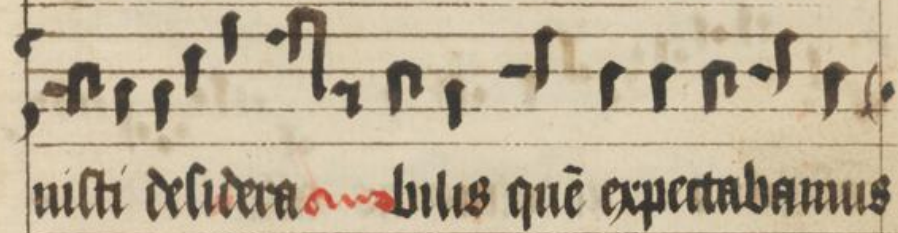 uisti desidera bilis quē expectabamus